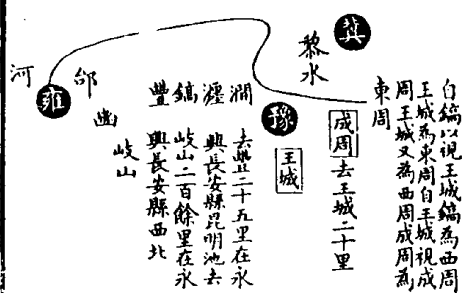 自鎬以視王城鎬為西周
王城為東周自王城視成
周王城又為西周成周為
東周
冀
黎水
成周去王城二十里
豫
王城
澗
瀍
鎬
豐
去豐二十五里在永
興長安縣昆明池去
岐山二百餘里在永
興長安縣西北
岐山
豳
邰
雍
河